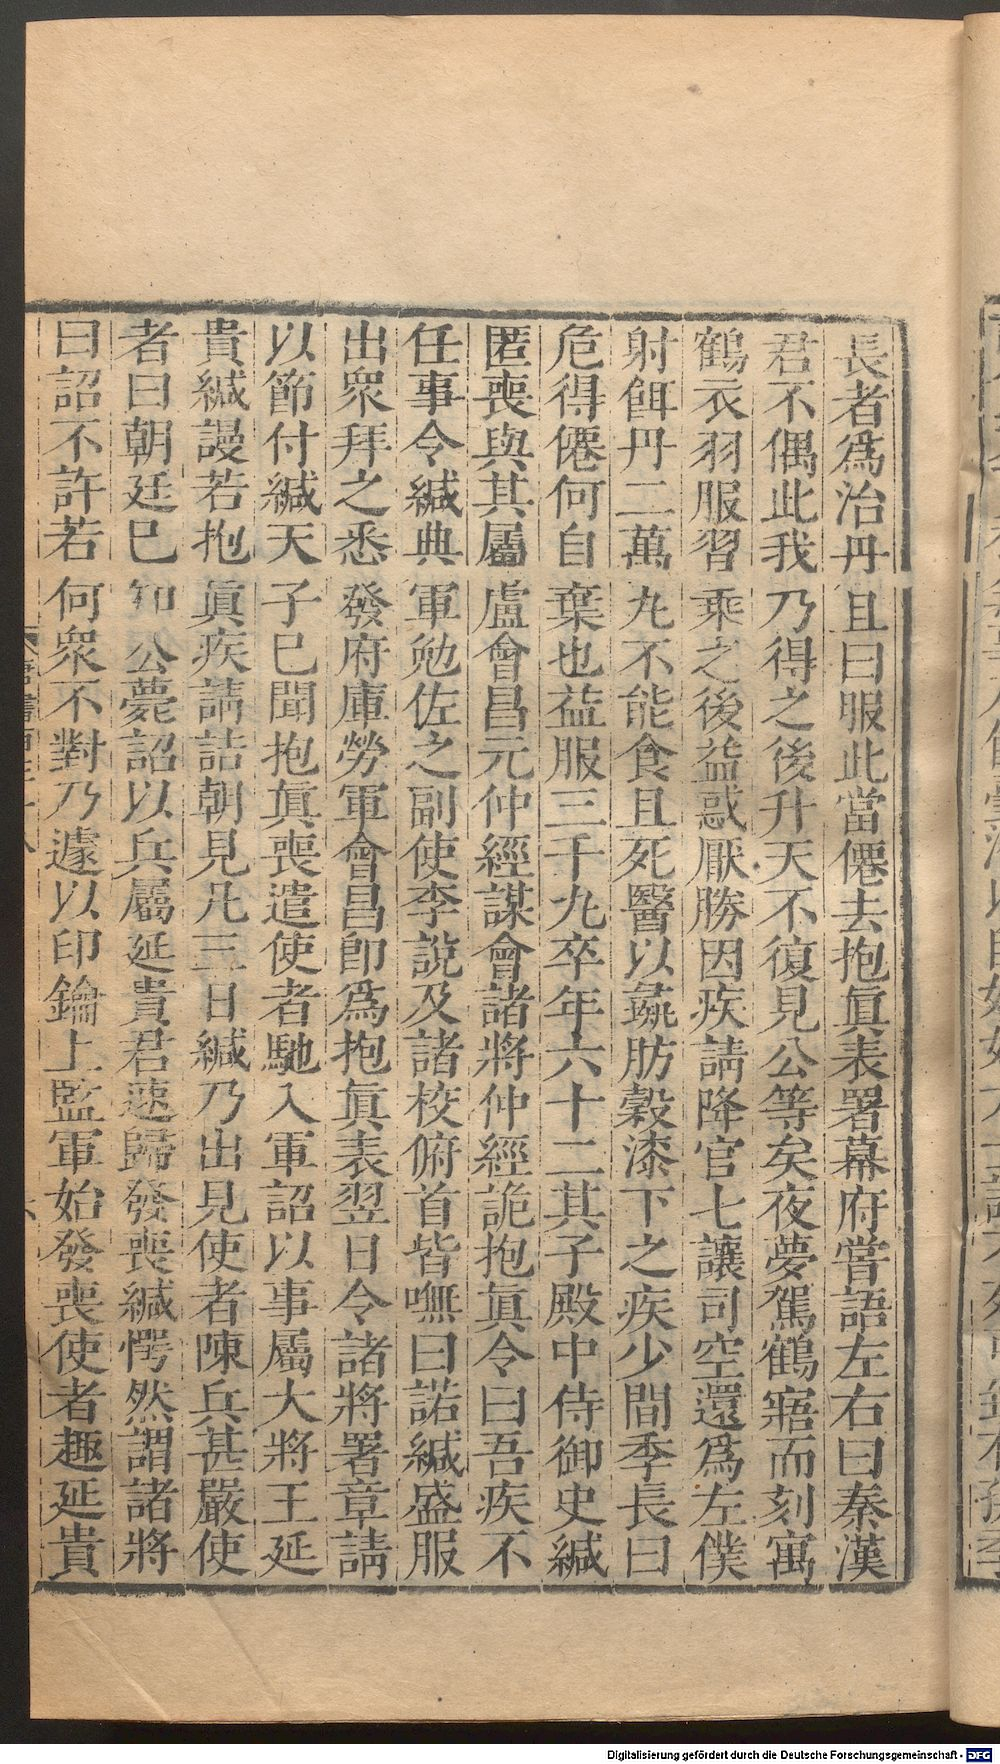 長者爲治丹且曰服此當僊去抱眞表署幕府嘗語左右曰秦漢
君不偶此我乃得之後升天不復見公等矣夜夢駕鶴寤而刻寓
鶴衣羽服習乘之後益惑厭勝因疾請降官七讓司空還爲左僕
射餌丹二萬丸不能食且死醫以彘肪穀漆下之疾少間季長曰
危得僊何自棄也益服三千丸卒年六十二其子殿中侍御史緘
匿喪與其屬盧會昌元仲經謀會諸將仲經詭抱眞令曰吾疾不
任事令緘典軍勉佐之副使李說及諸校俯首皆嘸曰諾緘盛服
出衆拜之悉發府庫勞軍會昌卽爲抱眞表翌日令諸將署章請
以節付緘天子巳聞抱眞喪遣使者馳入軍詔以事屬大將王延
貴緘謾若抱眞疾請詰朝見凡三日緘乃出見使者陳兵甚嚴使
者曰朝廷巳知公薨詔以兵屬延貴君速歸發喪緘愕然謂諸將
曰詔不許若何衆不對乃遽以印鑰上監軍始發喪使者趣延貴
Digitalisierung gefördert durch die Deutsche Forschungsgemeinschaft - DFG